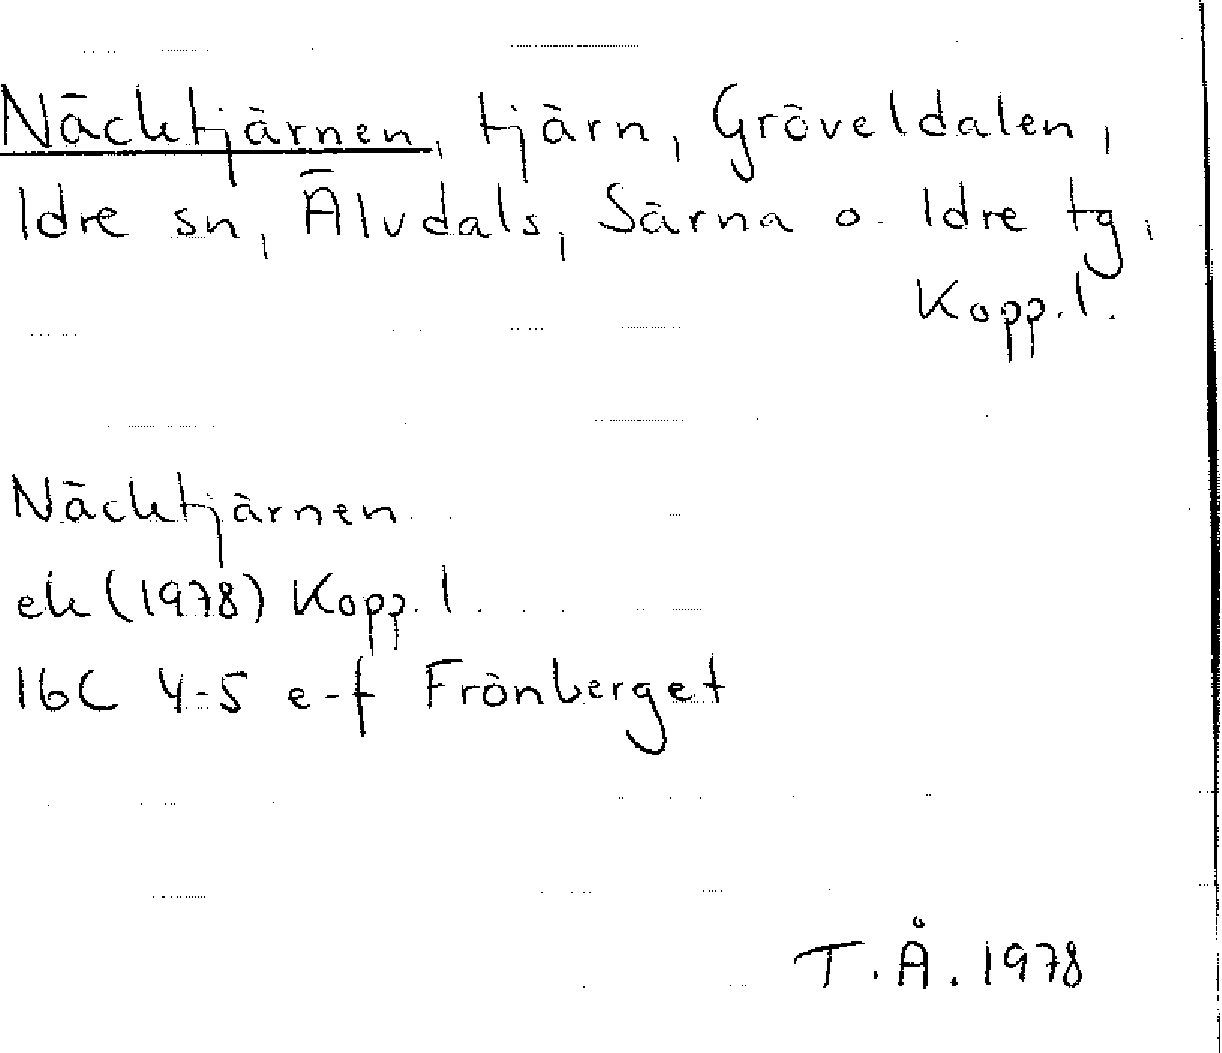 Näcktjärnen, tjärn, Gröveldalen,
Idre sn, Älvdals, Särna o. Idre tg,
Kopp. l.
Näcktjärnen
ek (1978) Kopp. l.
16C 4-5 e-f Frönberget
T. Å. 1978